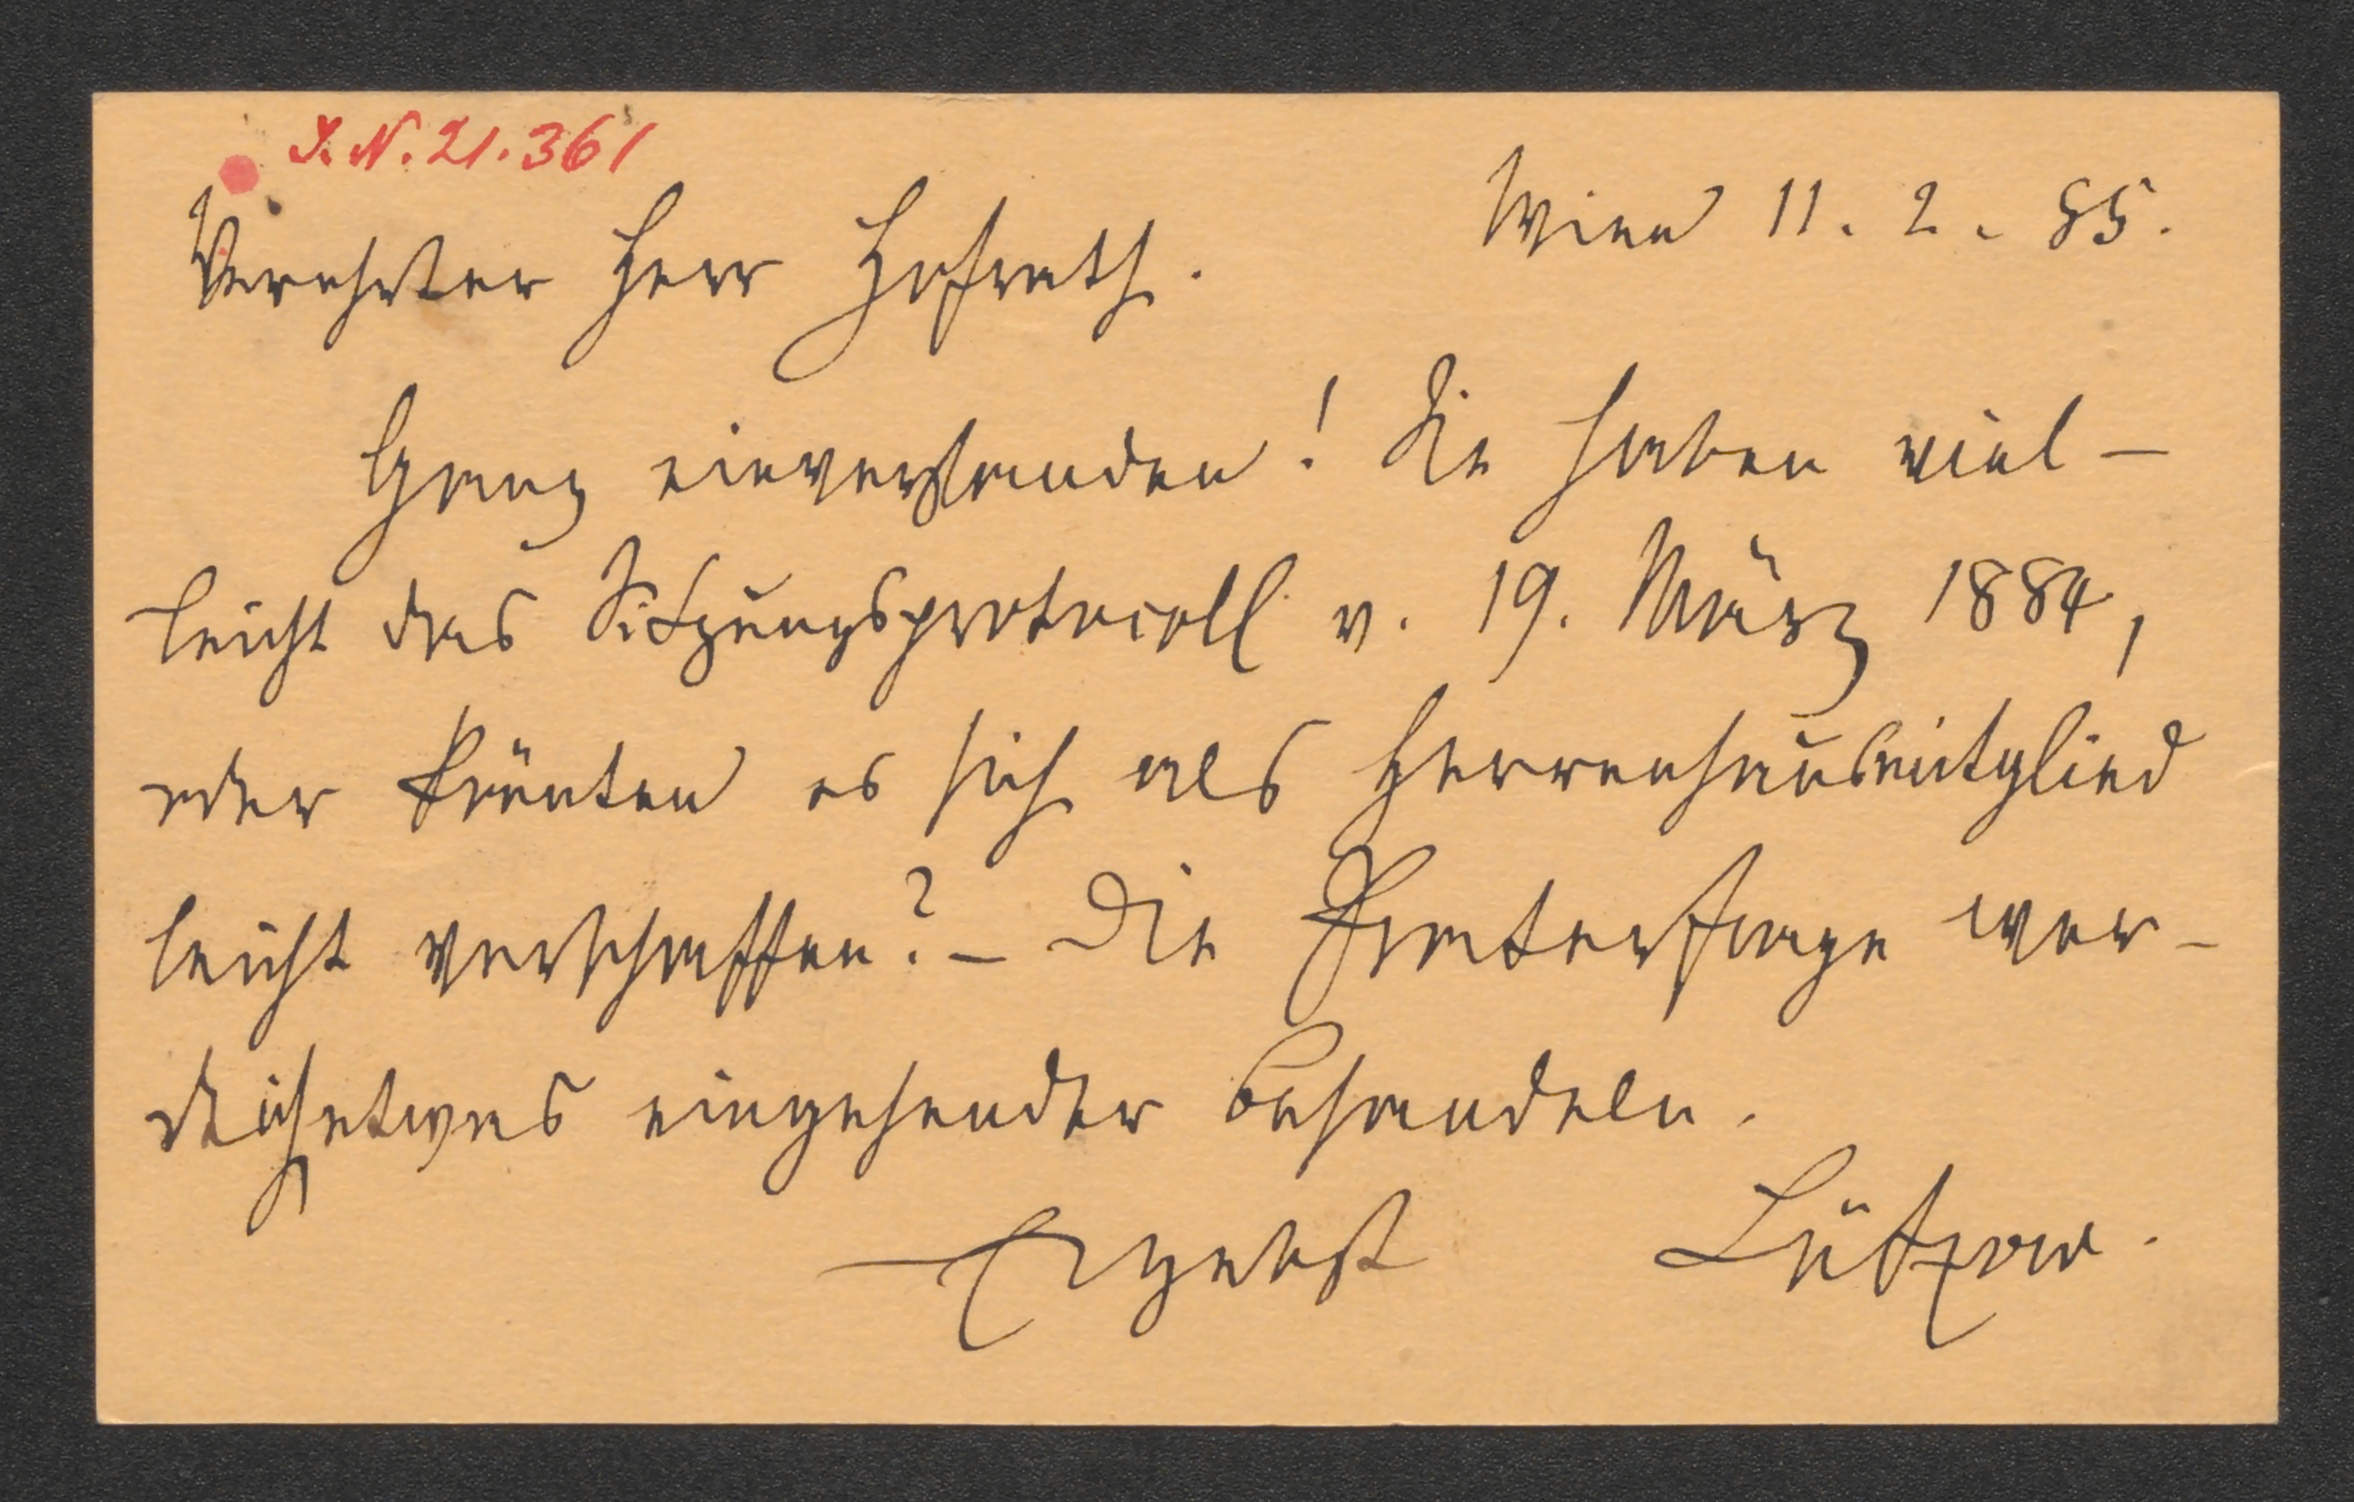 I. N. 21.361
Wien 11. 2. 85.
Verehrter Herr Hofrath.
Ganz einverstanden! Sie haben viel-
leicht das Sitzungsprotocoll v. 19. März 1884,
oder könnten es sich als Herrenhausmitglied
leicht verschaffen? – Die Praterfrage wer-
de ich etwas eingehender behandeln.
Ergebst Lützow.